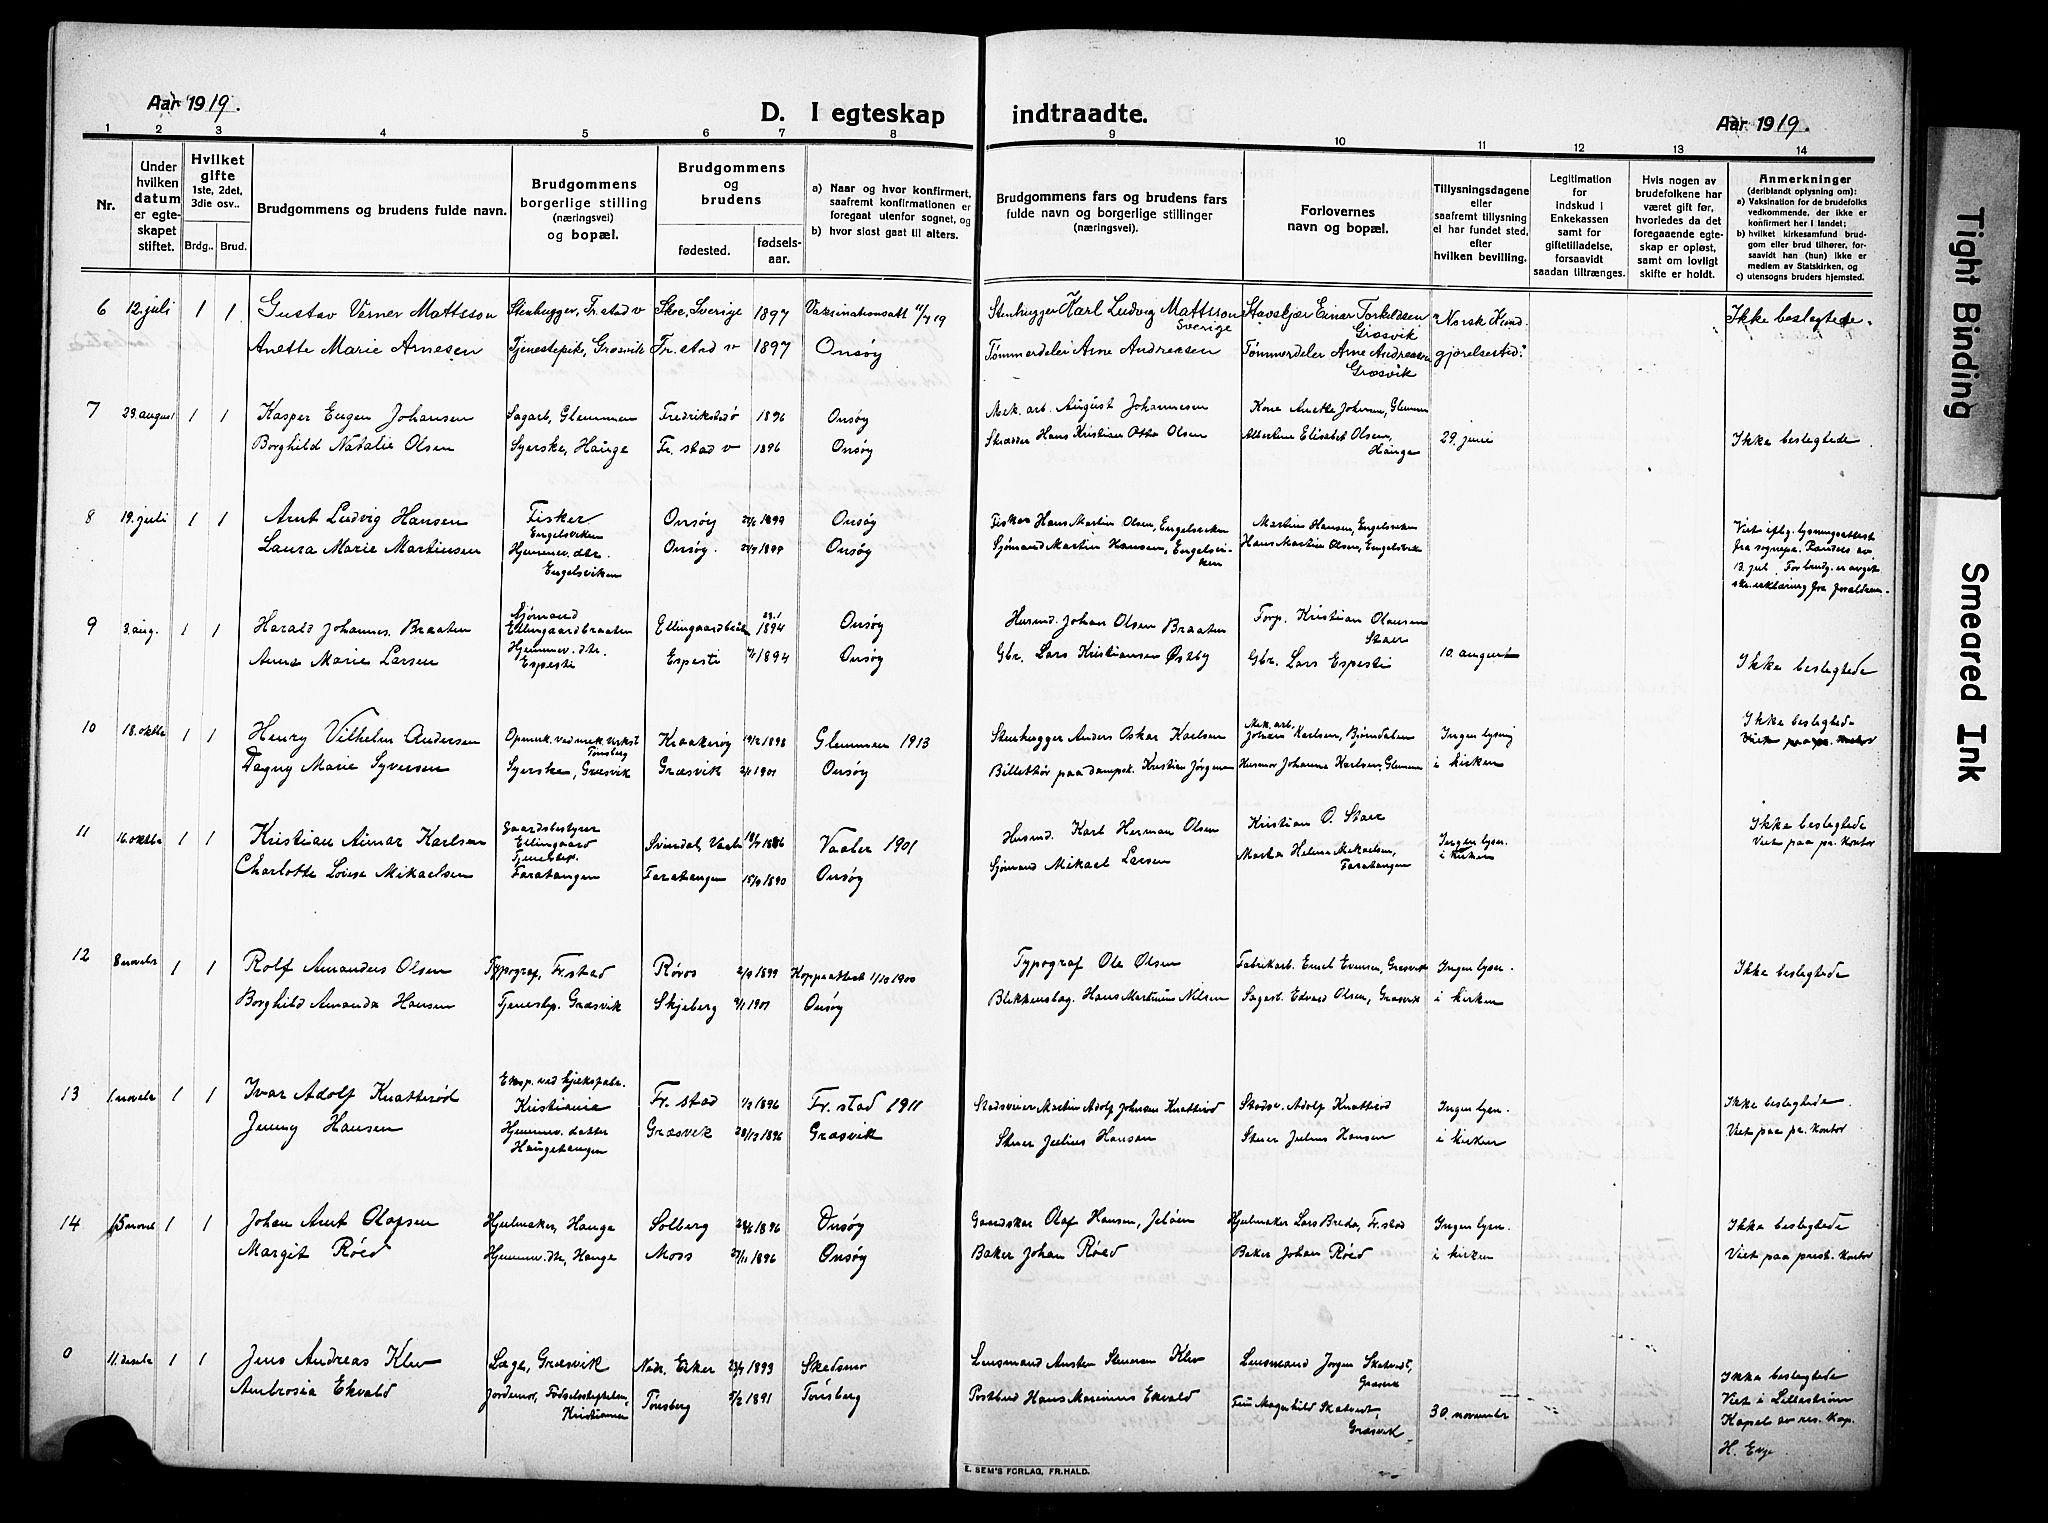 Aar 1919.
D. I egteskap indtraadte.
Aar 1919.
1 2 3 4 5 6 7 8 9 10 11 12 13 14
Nr.
Under hvilken datum er egteskapet stiftet.
Hvilket gifte 1ste, 2det, 3die osv..
Brdg.. Brud.
Brudgommens og brudens fulde navn.
Brudgommens borgerlige stilling (næringsvei) og bopæl.
Brudgommens og brudens
fødested. fødselsaar.
a) Naar og hvor konfirmert, saafremt konfirmationen er foregaat utenfor sognet, og
b) hvor sidst gaat til alters.
Brudgommens fars og brudens fars fulde navn og borgerlige stillinger (næringsvei).
Forlovernes navn og bopæl.
Tillysningsdagene eller saafremt tillysning ei har fundet sted, efter hvilken bevilling.
Legitimation for indskud i Enkekassen samt for giftetilladelse, forsaavidt saadan tiltrænges.
Hvis nogen av brudefolkene har været gift før, hvorledes da det foregaaende egteskap er opløst, samt om lovligt skifte er holdt.
Anmerkninger (deriblandt oplysning om):
a) Vaksination for de brudefolks vedkommende, der ikke er konfirmert her i landet;
b) hvilket kirkesamfund brudgom eller brud tilhører, forsaavidt han (hun) ikke er medlem av Statskirken, og
c) utensogns bruders hjemsted.
6 12. juli 1 1 Gustav Verner Mattsson Stenhugger, Fr. stad v Skee, Sverige 1897 Vaksinationsatt 11/7 19 Stenhugger Karl Ludvig Mattsson Sverige Einar Torkildsen Græsvik "Norsk Kund- Ikke beslegtede.
Anette Marie Arnesen Tjenestepik, Græsvik Fr. stad v 1897 Onsøy Tømmerdeler Arne Andreasen Tømmerdeler Arne Andreasen Græsvik gjørelsestid."
7 29. august 1 1 Kasper Eugen Johansen Sagarb. Glemmen Fredrikstad 1896 Onsøy Mek. arb. August Johannesen Kone Anette Johnsen, Glemmen
Borghild Natalie Olsen Syerske, Hauge Fr. stad v 1896 Onsøy Skrædder Hans Kristian Otto Olsen Albertine Elisabet Olsen, Hauge 29. juni Ikke beslegtede
8 19. juli 1 1 Arnt Ludvig Hansen Fisker Engelsviken Onsøy 1899 Onsøy Fisker Hans Martin Olsen, Engelsviken Martin Hansen, Engelsviken
Laura Marie Martinsen Hjemmev. dtr. Engelsviken Onsøy. Onsøy Sjømand Martin Hansen, Engelsviken Hans Martin Olsen, Engelsvik
Viet iflg. lysningsattest fra sognepr. av 13. juli For brudg. er avget skr. erklæring fra forældrene.
9 3. aug. 1 1 Harald Johannes Braaten Sjømand Ellingaardbraaten Ellingaardbråten 29/1 1894 Onsøy Husmd. Johan Olsen Braaten Torp. Kristian Olausen Staer
Anna Marie Larsen Hjemmev. dtr. Espesti Espesti 1894 Onsøy Gbr. Lars Kristiansen Østby Gbr. Lars Espesti 10. august Ikke beslegtede
10 18. oktbr 1 1 Henry Vilhelm Andersen Opmerk. ved mek. verkst Tønsberg Kraakerøy 19/2 1898 Glemmen 1913 Stenhugger Anders Oskar Karlsen Mek. arb. Johan Karlsen, Bjørndalen Ingen lysning Ikke beslegtede
Viet paa pr. kontor
Dagny Marie Syversen Syerske, Græsvik Græsvik 2/1 1901 Onsøy Billettør paa dampsk. Kristian Jørgensen Husmor Johanna Karlsen, Glemmen i kirken
11 16. oktbr 1 1 Kristian Aimar Karlsen Gaardsbestyrer Ellingaard Svindal, Vaaler 1886 Vaaler 1901 Husmd. Karl Herman Olsen Kristian O. Staer Ingen lysn. Ikke beslegtede
Charlotte Lovise Mikaelsen Tjenestep. Faratangen Faratangen 15/9 1890 Onsøy Sjømand Mikael Larsen Marta Helene Mikaelsen, Faratangen i kirken Viet paa pr. kontor
12 8 novbr 1 1 Rolf Amandus Olsen Typograf, Fr. stad Røros 2/9 1899 Koppeattest 1/10 1900 Typograf Ole Olsen Fabrikarb. Emil Evensen, Græsvik Ingen lysn. Ikke beslegtede
Borghild Amanda Hansen Tjenestp. Græsvik Skjeberg 1901 Onsøy Blikkenslag. Hans Martinius Nilsen Sagarb. Edvard Olsen, Græsvik i kirken
13 1 novbr 1 1 Ivar Adolf Knatterød Eksp. ved kjeksfabr. Kristiania Fr. stad 1/9 1896 Fr. stad 1911 Stadsveier Martin Adolf Johnsen Knatterød Stadsv. Adolf Knatterød Ingen lysn. Ikke beslegtede.
Jenny Hansen Hjemmev. datter Haugetangen Græsvik 28/12 1896 Græsvik Skuer Julius Hansen Skuer Julius Hansen i kirken Viet paa pr. kontor
14 15 novbr 1 1 Johan Arnt Olafsen Hjulmaker, Hauge Solberg 1896 Onsøy Gaardskar Olaf Hansen, Jeløen Hjulmaker Lars Breda, Fr. stad Ingen lysn. Ikke beslegtede
Margit Røed Hjemmev. dtr, Hauge Moss 27/11 1896 Onsøy Baker Johan Røed Baker Johan Røed i kirken Viet paa prest. kontor
0 11. desbr 1 1 Jens Andreas Klev Læge, Græsvik Nedr. Eiker 1893 Skedsmo Lensmand Austen Stenersen Klev Lensmand Jørgen Skatvedt, Græsvik Ikke beslegtede
Ambrosia Ekvald Jordmor, Fødselsstiftelsen, Kristiania Tønsberg 1891 Tønsberg Postbud Hans Marinius Ekvald Fru Magnhild Skatvedt, Græsvik. 30. november Viet i Lillestrøm Kapel av res. kap. H. Evje
E. SEM'S FORLAG, FR.HALD.
Tight Binding
Smeared Ink